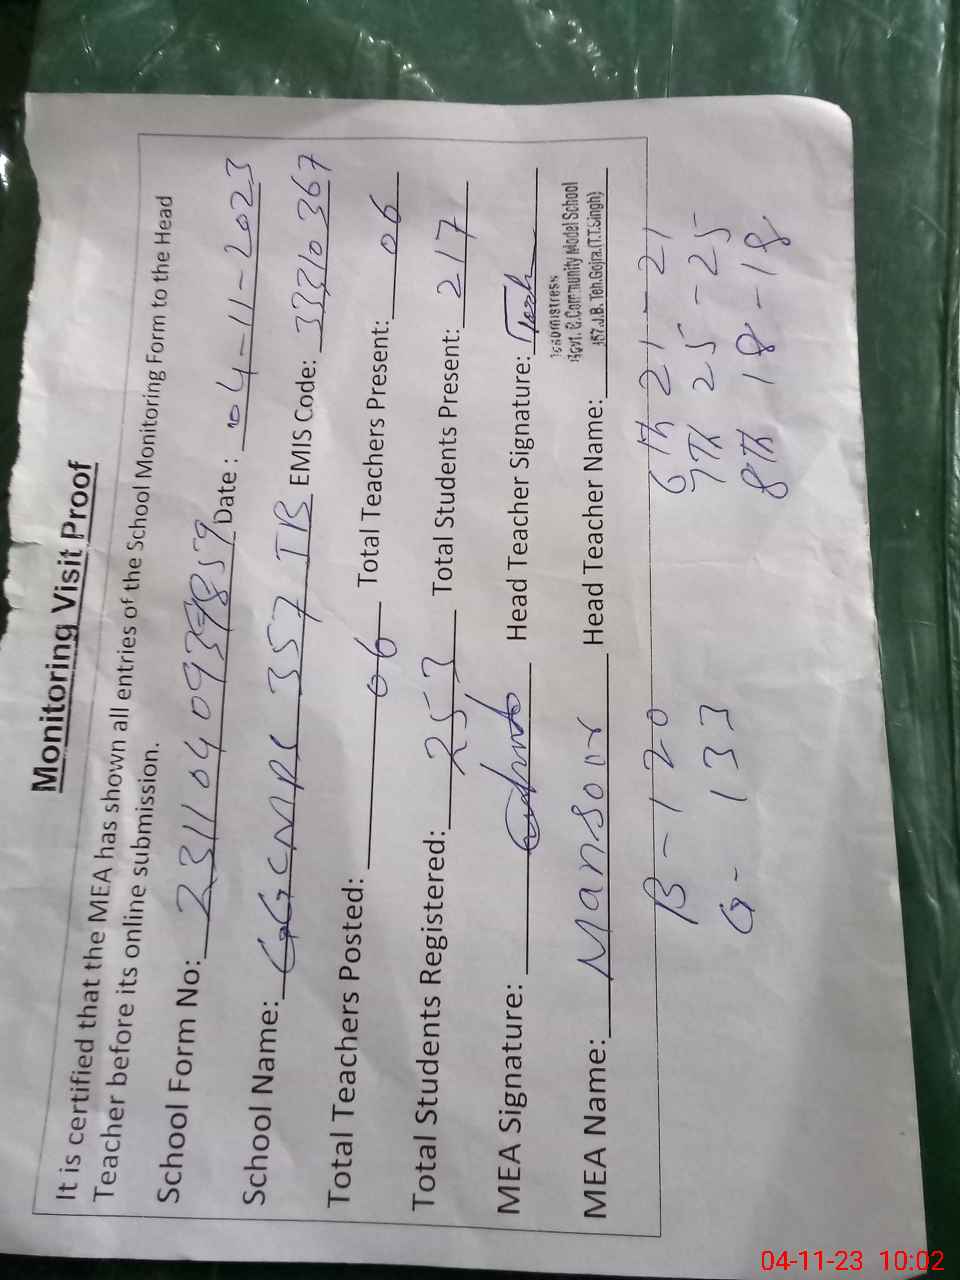 Monitoring Visit Proof
It is certified that the MEA has shown all entries of the School Monitoring Form to the Head
Teacher before its online submission.
School Form No: 23110409398559 Date : 04-11-2023
School Name: GGCMPS 357 JB EMIS Code: 33310367
Total Teachers Posted: 06 Total Teachers Present: 06
Total Students Registered: 253 Total Students Present: 217
MEA Signature: Head Teacher Signature:
Headmistress
Govt. G.Community Model School
357.J.B. Teh.Gojra.(T.T.Singh)
MEA Name: Mansoor Head Teacher Name:
B - 120 6th 21 - 21
G - 133 7th 25 - 25
8th 18 - 18
04-11-23 10:02